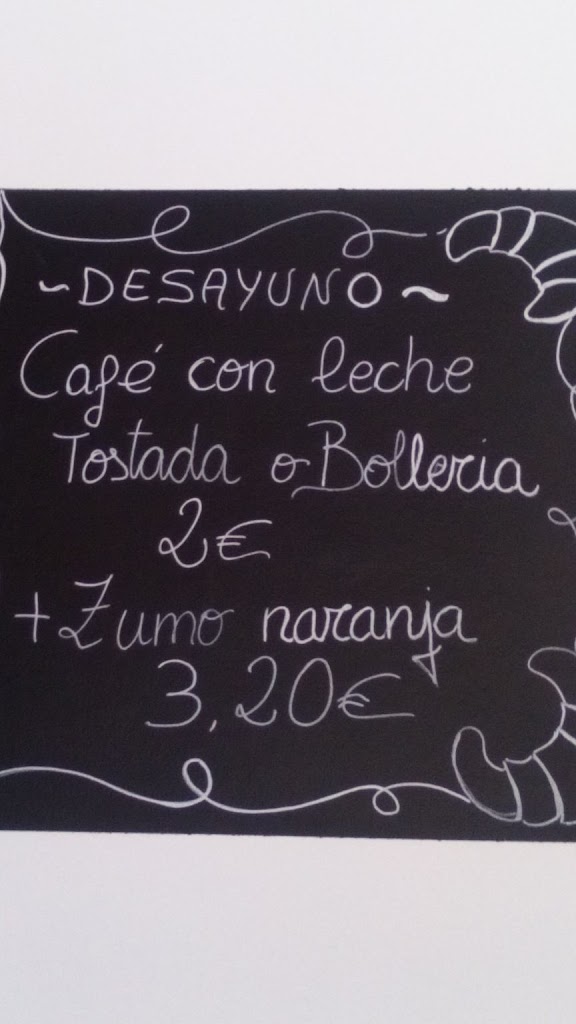 ~DESAYUNO~
Café con leche
Tostada o Bolleria
2€
+Zumo naranja
3,20€